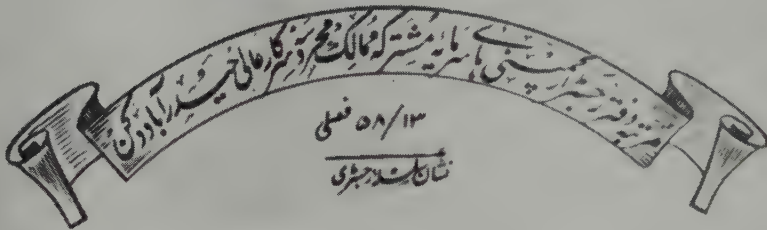 مرتبہ دفتر رجسٹرار کمپنی ہائے سرمایہ مشترکہ ممالک محروسہ سرکار عالی حیدرآباد دکن
۵۸/۱۳ فصلی
نشان سلسلہ رجسٹری